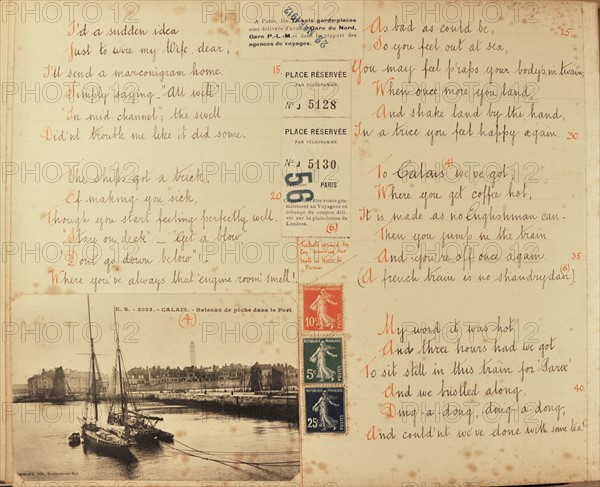 I'd a sudden idea
Just to wire my Wife, dear,
I'll send a marconigram home.
Simply saying - "All well"
"In mid channel"; the swell
Did'nt trouble me like it did some.
The ships got a trick,
Of making you sick,
Though you start feeling perfectly well.
"Stay on deck" - "Get a blow"
"Dont go down below"!-
Where you've always that "engine room" smell!
15.
20.
A Paris, les tickets garde-places
Gare du Nord,
Gare P.-L.-M.
agences de voyages.
PLACE RÉSERVÉE
PAR TÉLÉGRAMME
No J 5128
PLACE RÉSERVÉE
PAR TÉLÉGRAMME
No J 5130
PARIS
56
Londres.
(6)
E. S. - 2033. - CALAIS. - Bateaux de pêche dans le Port
(4)
10c
POSTES
5c
POSTES
25c
POSTES
As bad as could be,
So you feel out at sea,
You may feel p'raps your body's in twain,
When once more you land,
And shake land by the hand,
In a trice you feel happy again.
25.
30.
To Calais (4) we've got,
Where you get coffee hot,
It is made as no Englishman can -
Then you jump in the train
And you're off once again.
(A french train is no shandrydan) (6)
35.
My word it was hot,
And three hours had we got
To sit still in this train for 'Paree'
And we bustled along.
Ding-a dong, ding-a dong,
And could'nt we've done with some tea!
40.